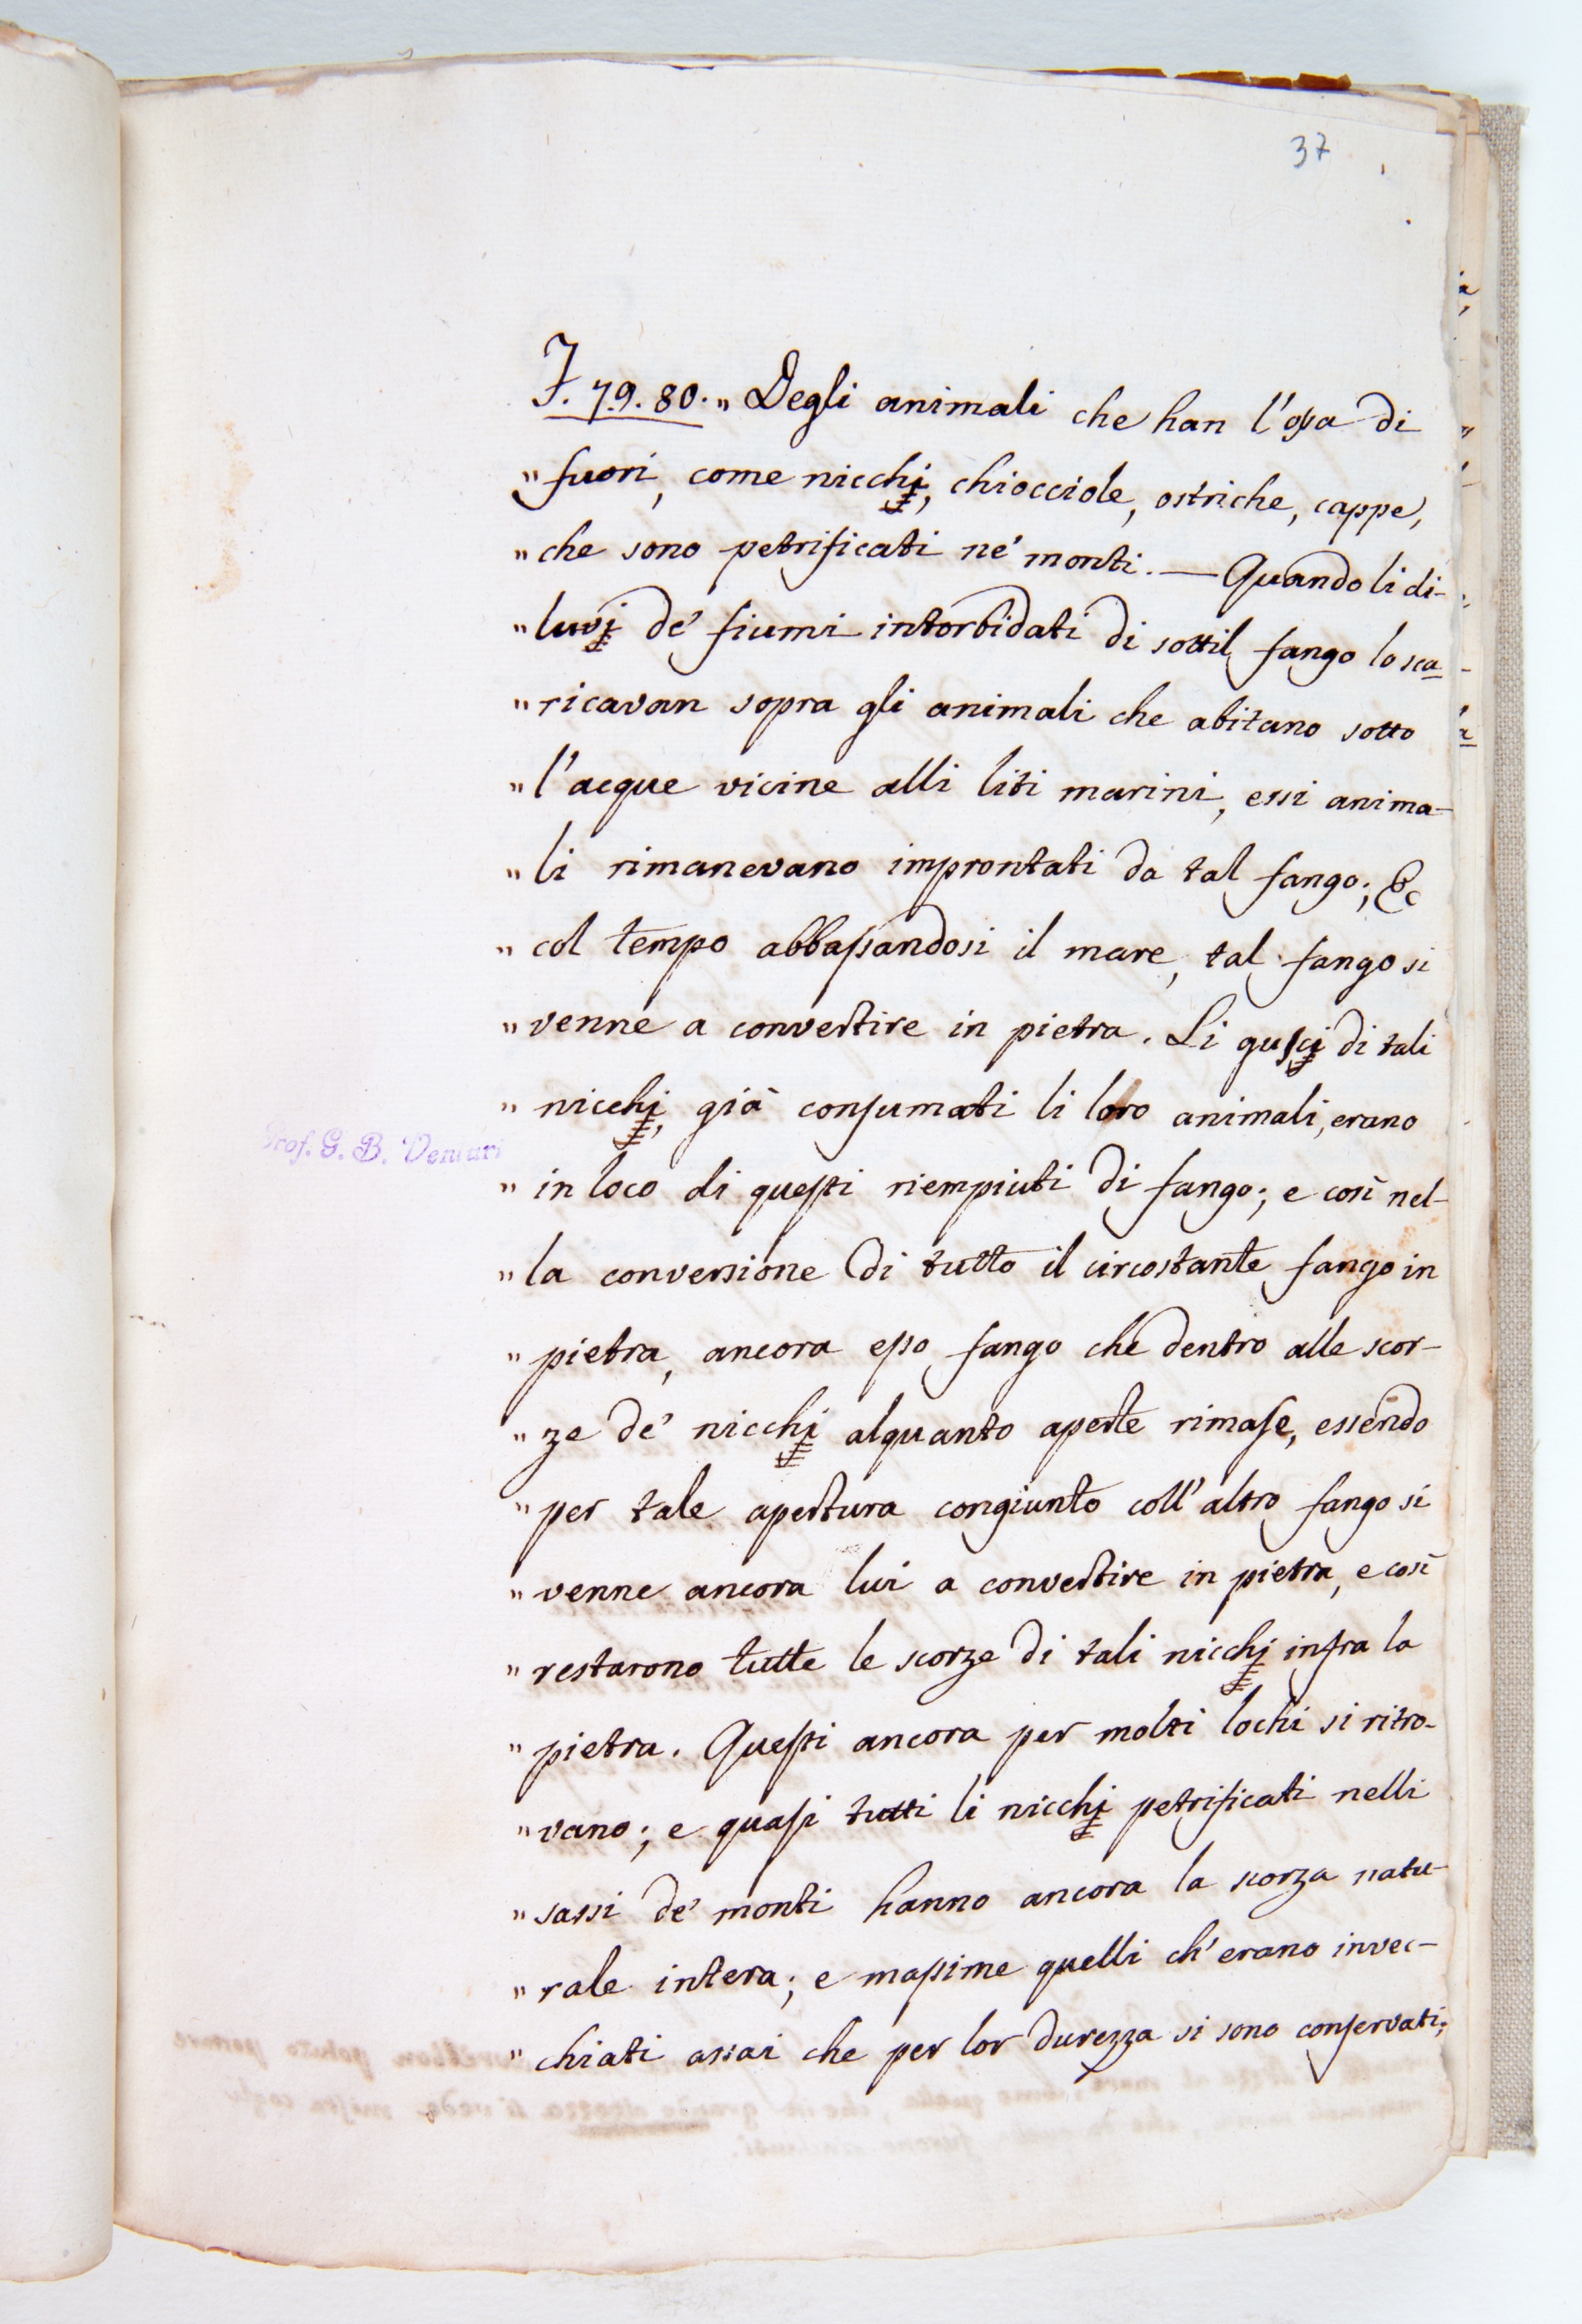 37
F. 79. 80. „ Degli animali che han l'ossa di
„ fuori, come nicchj, chiocciole, ostriche, cappe,
„ che sono petrificati ne' monti. — Quando li di-
„ luvj de' fiumi intorbidati di sottil fango lo sca
„ ricavan sopra gli animali che abitano sotto
„ l'acque vicine alli liti marini, essi anima-
„ li rimanevano improntati da tal fango; &
„ col tempo abbassandosi il mare, tal fango si
„ venne a convertire in pietra. Li guscj di tali
„ nicchj, già consumati li loro animali, erano
„ in loco di questi riempiuti di fango; e così nel-
„ la conversione di tutto il circostante fango in
„ pietra, ancora esso fango che dentro alle scor-
„ ze de' nicchj alquanto aperte rimase, essendo
„ per tale apertura congiunto coll'altro fango si
„ venne ancora lui a convertire in pietra, e così
„ restarono tutte le scorze di tali nicchj infra la
„ pietra. Questi ancora per molti lochi si ritro-
„ vano; e quasi tutti li nicchj petrificati nelli
„ sassi de' monti hanno ancora la scorza natu-
„ rale intera; e massime quelli ch'erano invec-
„ chiati assai che per lor durezza si sono conservati;
Prof. G. B. Venturi